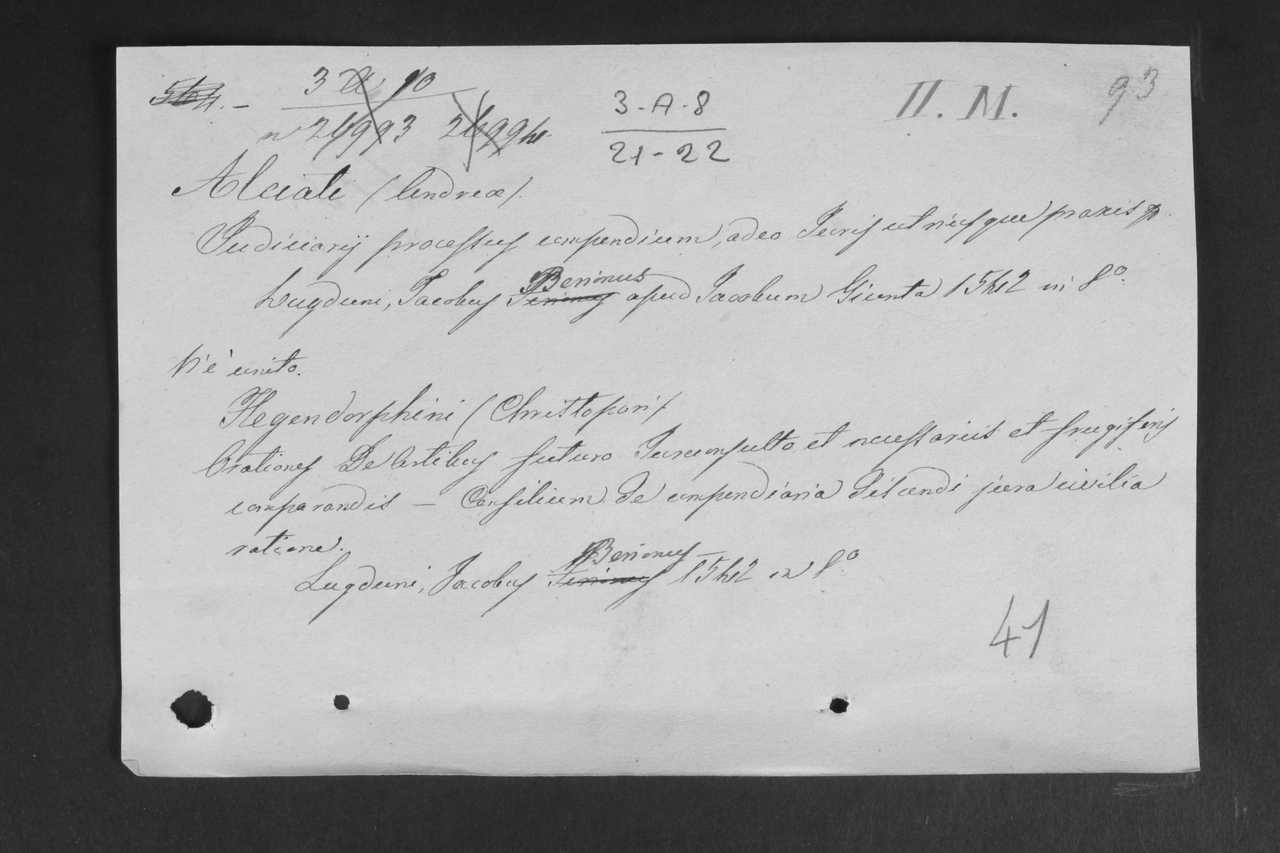 564. - 3 A 10 3-A-8 II. M. 93
n° 24993 24994 21-22
Alciati (Andreæ).
Judiciarij processus compendium, adeo Juris utriusque praxis
Lugduni, Jacobus Berionus apud Jacobum Giunta 1542 in 8°.
V'è unito.
Hegendorphini (Christofori)
Orationes De Artibus futuro Jurconsulto et necessariis et frugiferis
comparandis — Consilium de compendiaria discendi jura civilia
ratione.
Lugduni, Jacobus Berionus 1542 in 8°
41